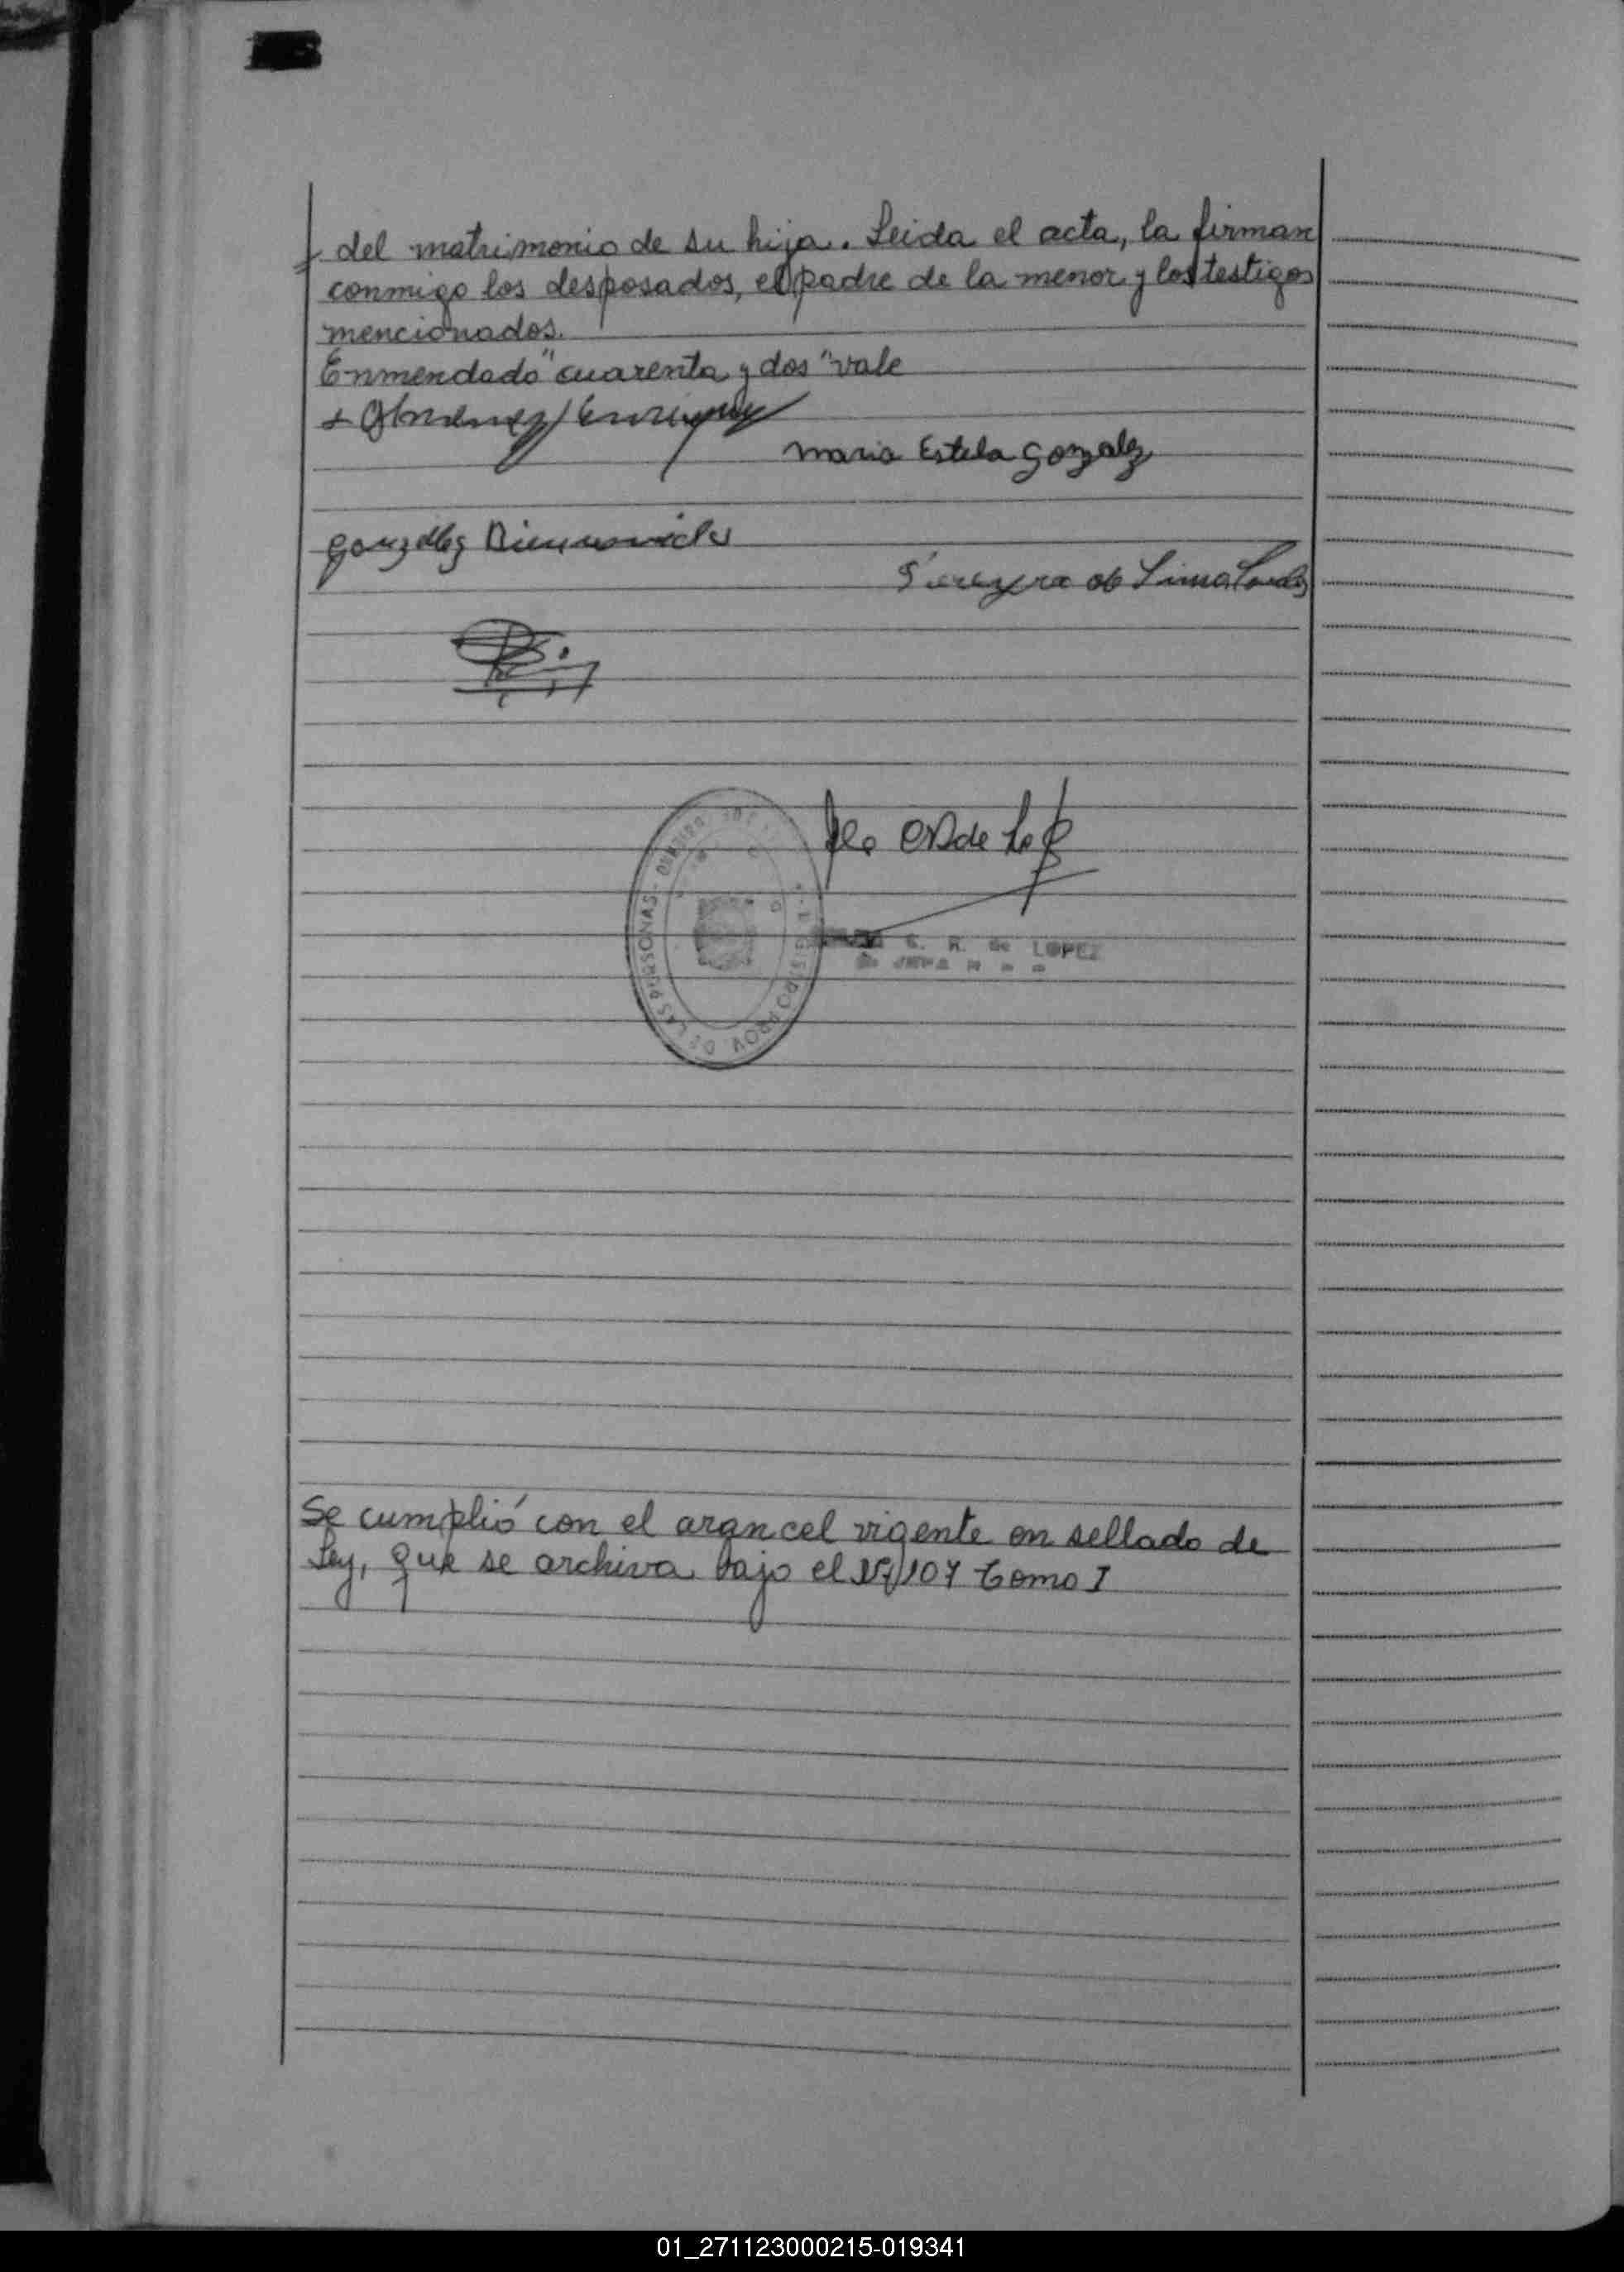 del matrimonio de su hija. Leida el acta, la firman
conmigo los desposados, el padre de la menor y los testigos
mencionados.
Enmendado "cuarenta y dos" vale
Maria Estela Gonzalez
Gonzalez
de Lima
REGISTRO PROV. DE LAS PERSONAS
de LOPEZ
Se cumplió con el arancel vigente en sellado de
Ley, que se archiva bajo el Nº 107 Tomo I
01_271123000215-019341